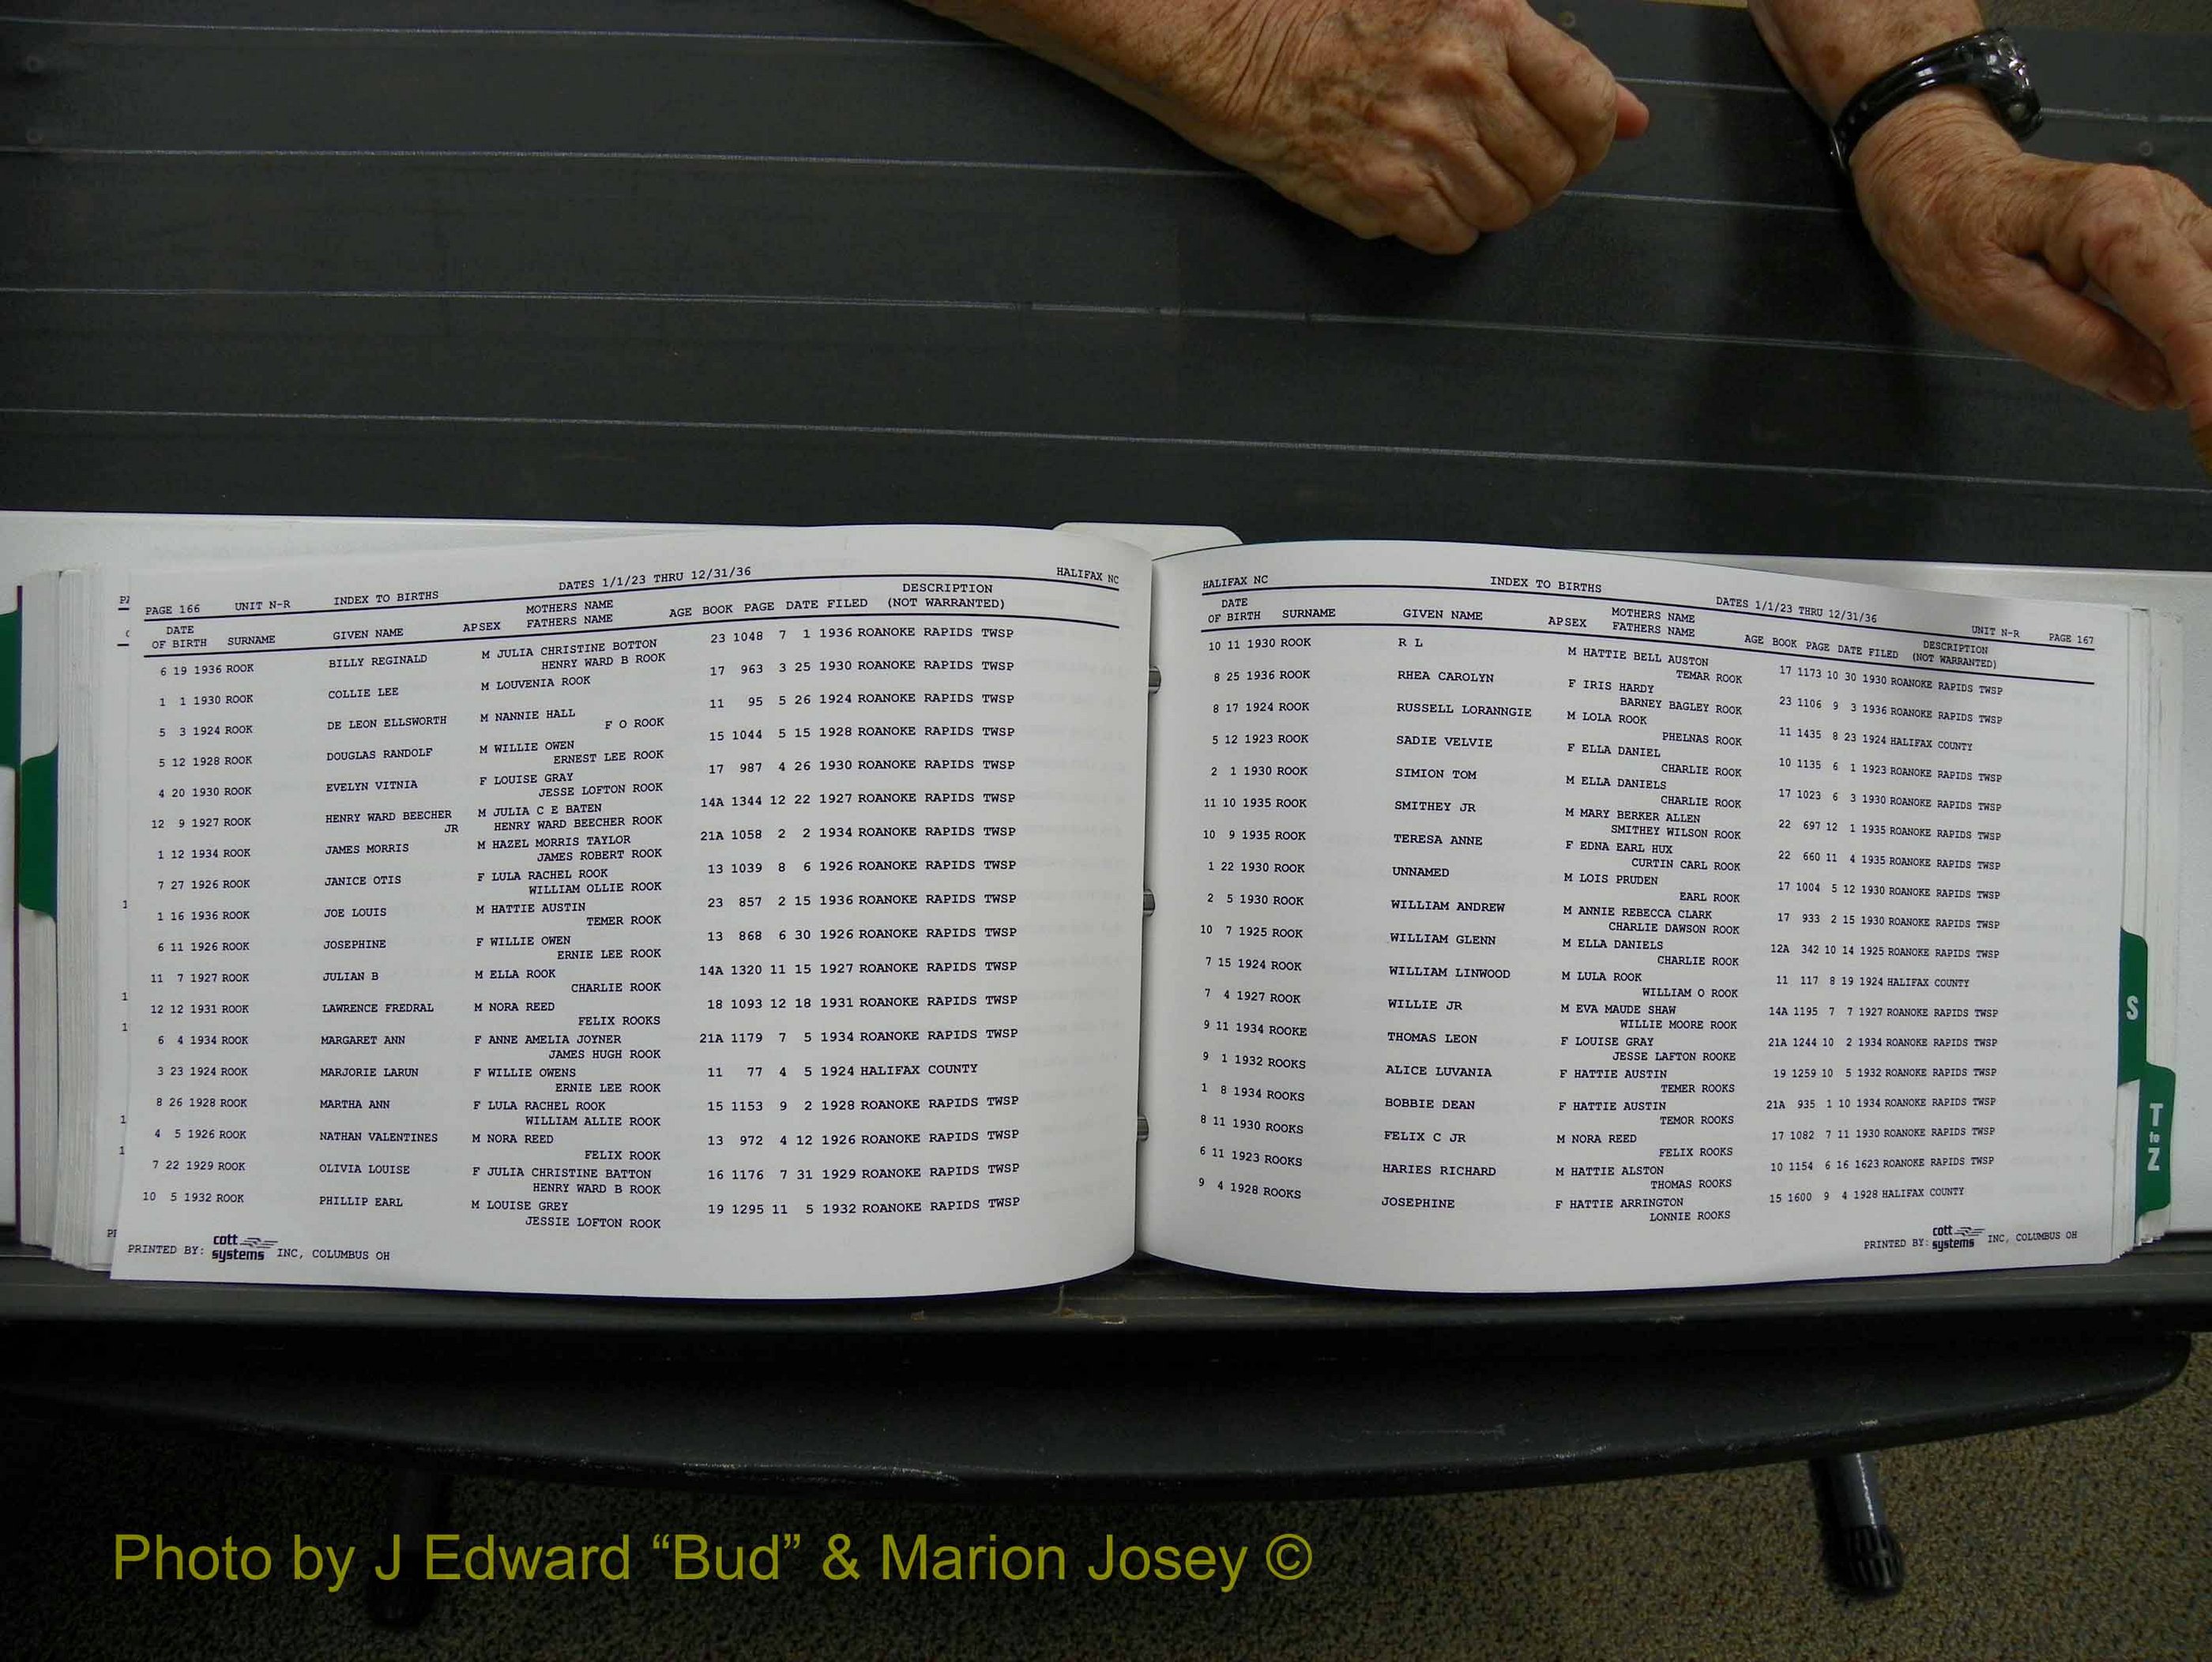 PAGE 166 UNIT N-R INDEX TO BIRTHS DATES 1/1/23 THRU 12/31/36 HALIFAX NC
DATE OF BIRTH SURNAME GIVEN NAME APSEX MOTHERS NAME FATHERS NAME AGE BOOK PAGE DATE FILED DESCRIPTION (NOT WARRANTED)
6 19 1936 ROOK BILLY REGINALD M JULIA CHRISTINE BOTTON 23 1048 7 1 1936 ROANOKE RAPIDS TWSP
HENRY WARD B ROOK
1 1 1930 ROOK COLLIE LEE M LOUVENIA ROOK 17 963 3 25 1930 ROANOKE RAPIDS TWSP
5 3 1924 ROOK DE LEON ELLSWORTH M NANNIE HALL 11 95 5 26 1924 ROANOKE RAPIDS TWSP
F O ROOK
5 12 1928 ROOK DOUGLAS RANDOLF M WILLIE OWEN 15 1044 5 15 1928 ROANOKE RAPIDS TWSP
ERNEST LEE ROOK
4 20 1930 ROOK EVELYN VITNIA F LOUISE GRAY 17 987 4 26 1930 ROANOKE RAPIDS TWSP
JESSE LOFTON ROOK
12 9 1927 ROOK HENRY WARD BEECHER M JULIA C E BATEN 14A 1344 12 22 1927 ROANOKE RAPIDS TWSP
JR HENRY WARD BEECHER ROOK
1 12 1934 ROOK JAMES MORRIS M HAZEL MORRIS TAYLOR 21A 1058 2 2 1934 ROANOKE RAPIDS TWSP
JAMES ROBERT ROOK
7 27 1926 ROOK JANICE OTIS F LULA RACHEL ROOK 13 1039 8 6 1926 ROANOKE RAPIDS TWSP
WILLIAM OLLIE ROOK
1 16 1936 ROOK JOE LOUIS M HATTIE AUSTIN 23 857 2 15 1936 ROANOKE RAPIDS TWSP
TEMER ROOK
6 11 1926 ROOK JOSEPHINE F WILLIE OWEN 13 868 6 30 1926 ROANOKE RAPIDS TWSP
ERNIE LEE ROOK
11 7 1927 ROOK JULIAN B M ELLA ROOK 14A 1320 11 15 1927 ROANOKE RAPIDS TWSP
CHARLIE ROOK
12 12 1931 ROOK LAWRENCE FREDRAL M NORA REED 18 1093 12 18 1931 ROANOKE RAPIDS TWSP
FELIX ROOKS
6 4 1934 ROOK MARGARET ANN F ANNE AMELIA JOYNER 21A 1179 7 5 1934 ROANOKE RAPIDS TWSP
JAMES HUGH ROOK
3 23 1924 ROOK MARJORIE LARUN F WILLIE OWENS 11 77 4 5 1924 HALIFAX COUNTY
ERNIE LEE ROOK
8 26 1928 ROOK MARTHA ANN F LULA RACHEL ROOK 15 1153 9 2 1928 ROANOKE RAPIDS TWSP
WILLIAM ALLIE ROOK
4 5 1926 ROOK NATHAN VALENTINES M NORA REED 13 972 4 12 1926 ROANOKE RAPIDS TWSP
FELIX ROOK
7 22 1929 ROOK OLIVIA LOUISE F JULIA CHRISTINE BATTON 16 1176 7 31 1929 ROANOKE RAPIDS TWSP
HENRY WARD B ROOK
10 5 1932 ROOK PHILLIP EARL M LOUISE GREY 19 1295 11 5 1932 ROANOKE RAPIDS TWSP
JESSIE LOFTON ROOK
PRINTED BY: cott systems INC, COLUMBUS OH
HALIFAX NC INDEX TO BIRTHS DATES 1/1/23 THRU 12/31/36 UNIT N-R PAGE 167
DATE OF BIRTH SURNAME GIVEN NAME APSEX MOTHERS NAME FATHERS NAME AGE BOOK PAGE DATE FILED DESCRIPTION (NOT WARRANTED)
10 11 1930 ROOK R L M HATTIE BELL AUSTON 17 1173 10 30 1930 ROANOKE RAPIDS TWSP
TEMAR ROOK
8 25 1936 ROOK RHEA CAROLYN F IRIS HARDY 23 1106 9 3 1936 ROANOKE RAPIDS TWSP
BARNEY BAGLEY ROOK
8 17 1924 ROOK RUSSELL LORANNGIE M LOLA ROOK 11 1435 8 23 1924 HALIFAX COUNTY
PHELNAS ROOK
5 12 1923 ROOK SADIE VELVIE F ELLA DANIEL 10 1135 6 1 1923 ROANOKE RAPIDS TWSP
CHARLIE ROOK
2 1 1930 ROOK SIMION TOM M ELLA DANIELS 17 1023 6 3 1930 ROANOKE RAPIDS TWSP
CHARLIE ROOK
11 10 1935 ROOK SMITHEY JR M MARY BERKER ALLEN 22 697 12 1 1935 ROANOKE RAPIDS TWSP
SMITHEY WILSON ROOK
10 9 1935 ROOK TERESA ANNE F EDNA EARL HUX 22 660 11 4 1935 ROANOKE RAPIDS TWSP
CURTIN CARL ROOK
1 22 1930 ROOK UNNAMED M LOIS PRUDEN 17 1004 5 12 1930 ROANOKE RAPIDS TWSP
EARL ROOK
2 5 1930 ROOK WILLIAM ANDREW M ANNIE REBECCA CLARK 17 933 2 15 1930 ROANOKE RAPIDS TWSP
CHARLIE DAWSON ROOK
10 7 1925 ROOK WILLIAM GLENN M ELLA DANIELS 12A 342 10 14 1925 ROANOKE RAPIDS TWSP
CHARLIE ROOK
7 15 1924 ROOK WILLIAM LINWOOD M LULA ROOK 11 117 8 19 1924 HALIFAX COUNTY
WILLIAM O ROOK
7 4 1927 ROOK WILLIE JR M EVA MAUDE SHAW 14A 1195 7 7 1927 ROANOKE RAPIDS TWSP
WILLIE MOORE ROOK
9 11 1934 ROOKE THOMAS LEON F LOUISE GRAY 21A 1244 10 2 1934 ROANOKE RAPIDS TWSP
JESSE LAFTON ROOKE
9 1 1932 ROOKS ALICE LUVANIA F HATTIE AUSTIN 19 1259 10 5 1932 ROANOKE RAPIDS TWSP
TEMER ROOKS
1 8 1934 ROOKS BOBBIE DEAN F HATTIE AUSTIN 21A 935 1 10 1934 ROANOKE RAPIDS TWSP
TEMOR ROOKS
8 11 1930 ROOKS FELIX C JR M NORA REED 17 1082 7 11 1930 ROANOKE RAPIDS TWSP
FELIX ROOKS
6 11 1923 ROOKS HARIES RICHARD M HATTIE ALSTON 10 1154 6 16 1623 ROANOKE RAPIDS TWSP
THOMAS ROOKS
9 4 1928 ROOKS JOSEPHINE F HATTIE ARRINGTON 15 1600 9 4 1928 HALIFAX COUNTY
LONNIE ROOKS
PRINTED BY: cott systems INC, COLUMBUS OH
S
T to Z
Photo by J Edward “Bud” & Marion Josey ©